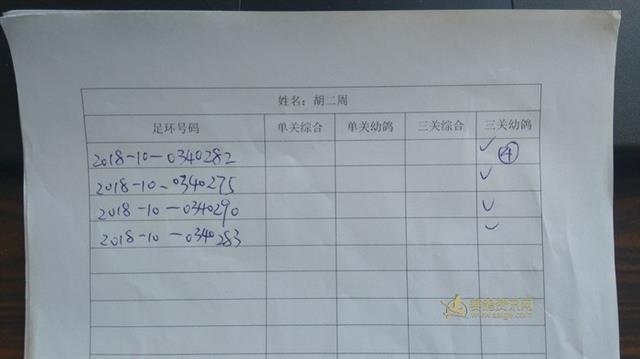 姓名：胡二周
足环号码 单关综合 单关幼鸽 三关综合 三关幼鸽
2018-10-0340282 ✓ ④
2018-10-0340275 ✓
2018-10-0340290 ✓
2018-10-0340283 ✓
赛鸽资讯网
www.saige.com